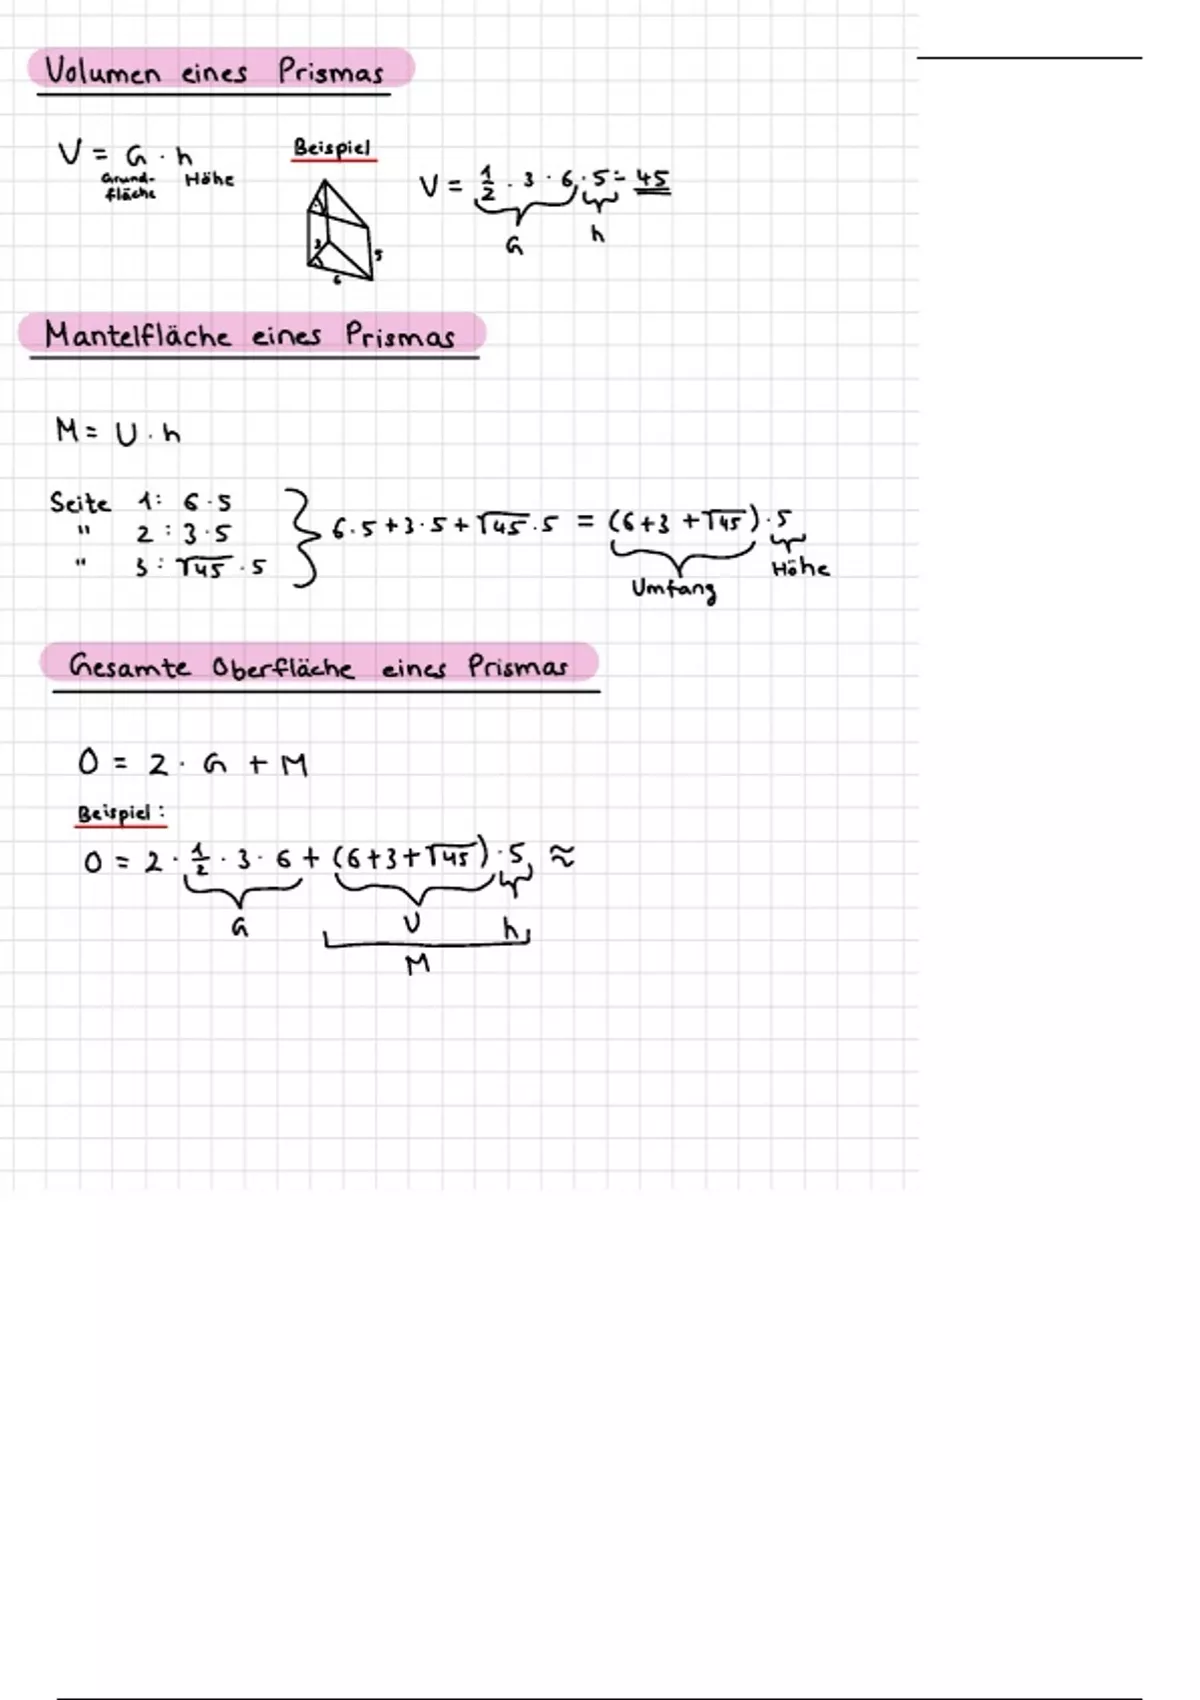 Volumen eines Prismas
V = G · h
Grund- Höhe
fläche
Beispiel
V = 1/2 · 3 · 6 · 5 = 45
G h
3
5
6
Mantelfläche eines Prismas
M = U · h
Seite 1: 6 · 5
" 2: 3 · 5
" 3: √45 · 5
6 · 5 + 3 · 5 + √45 · 5 = (6 + 3 + √45) · 5
Umfang Höhe
Gesamte Oberfläche eines Prismas
O = 2 · G + M
Beispiel:
O = 2 · 1/2 · 3 · 6 + (6 + 3 + √45) · 5 ≈
G U h
M